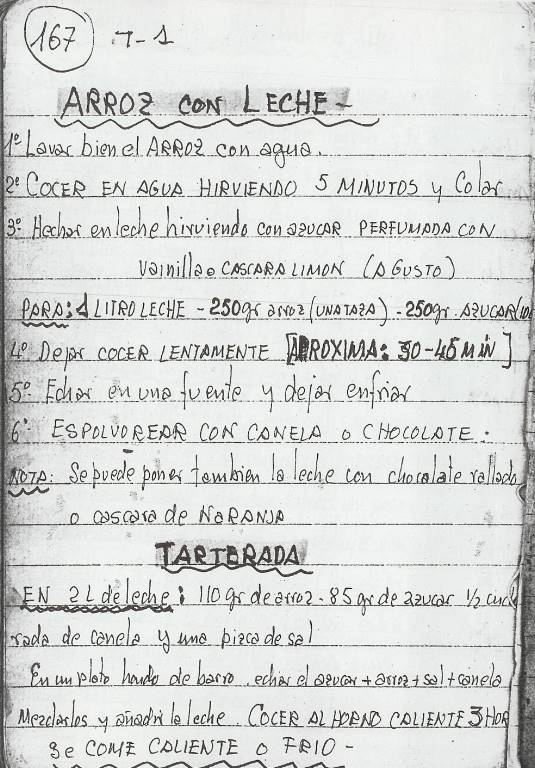 167 T-1
ARROZ CON LECHE-
1º Lavar bien el ARROZ con agua.
2º COCER EN AGUA HIRVIENDO 5 MINUTOS y Colar
3º Hechar en leche hirviendo con azucar PERFUMADA CON
Vainilla o CASCARA LIMON (A GUSTO)
PARA: 1 LITRO LECHE - 250gr arroz (UNA TAZA) - 250gr. AZUCAR
4º Dejar COCER LENTAMENTE [APROXIMA: 30-45 MIN]
5º Echar en una fuente y dejar enfriar
6º ESPOLVOREAR CON CANELA o CHOCOLATE.
NOTA: Se puede poner tambien la leche con chocolate rallado
o cascara de NARANJA
TARTERADA
EN 2L de leche: 110 gr de arroz - 85 gr de azucar 1/2 cucha
rada de canela y una pizca de sal
En un plato hondo de barro echar el azucar + arroz + sal + canela
Mezclarlos y añadir la leche. COCER AL HORNO CALIENTE 3 HOR
Se COME CALIENTE o FRIO -